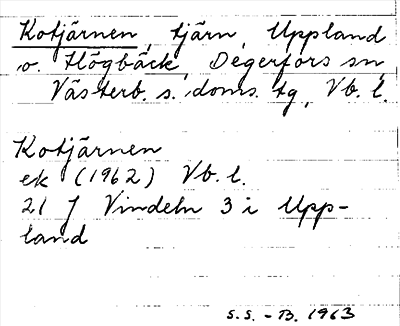 Kotjärnen, tjärn, Uppland
o. Högbäck, Degerfors sn,
Västerb. s. doms. tg, Vb. l.
Kotjärnen
ek (1962) Vb. l.
21 J Vindeln 3 i Upp-
land
S.S. - B. 1963